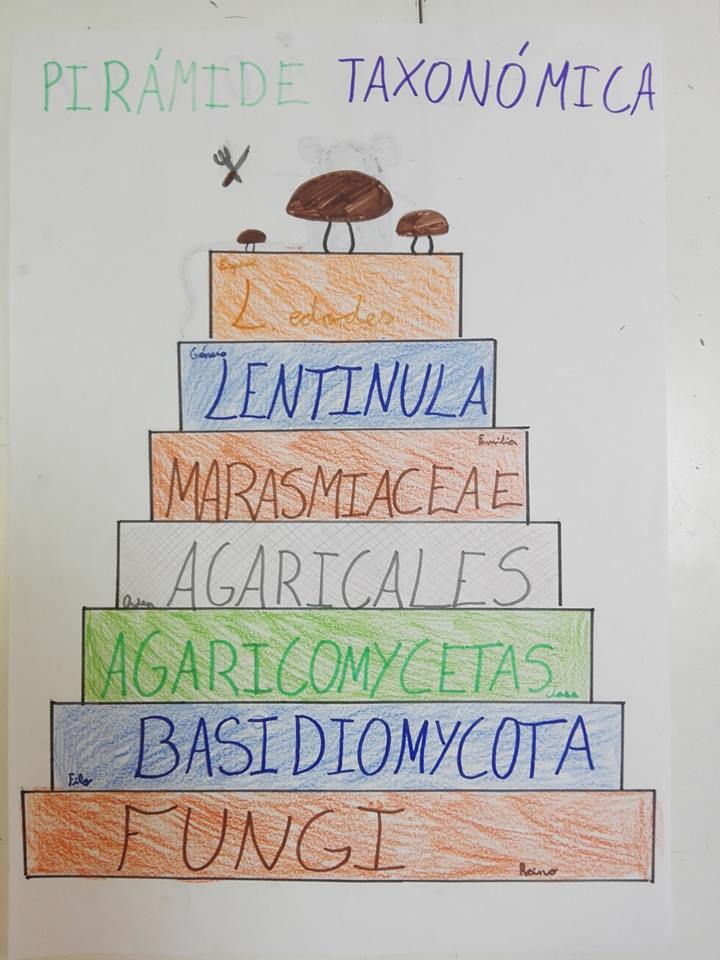 PIRÁMIDE TAXONÓMICA
L. edodes
Género
LENTINULA
Familia
MARASMIACEAE
AGARICALES
Orden
AGARICOMYCETAS
BASIDIOMYCOTA
Filo
FUNGI
Reino